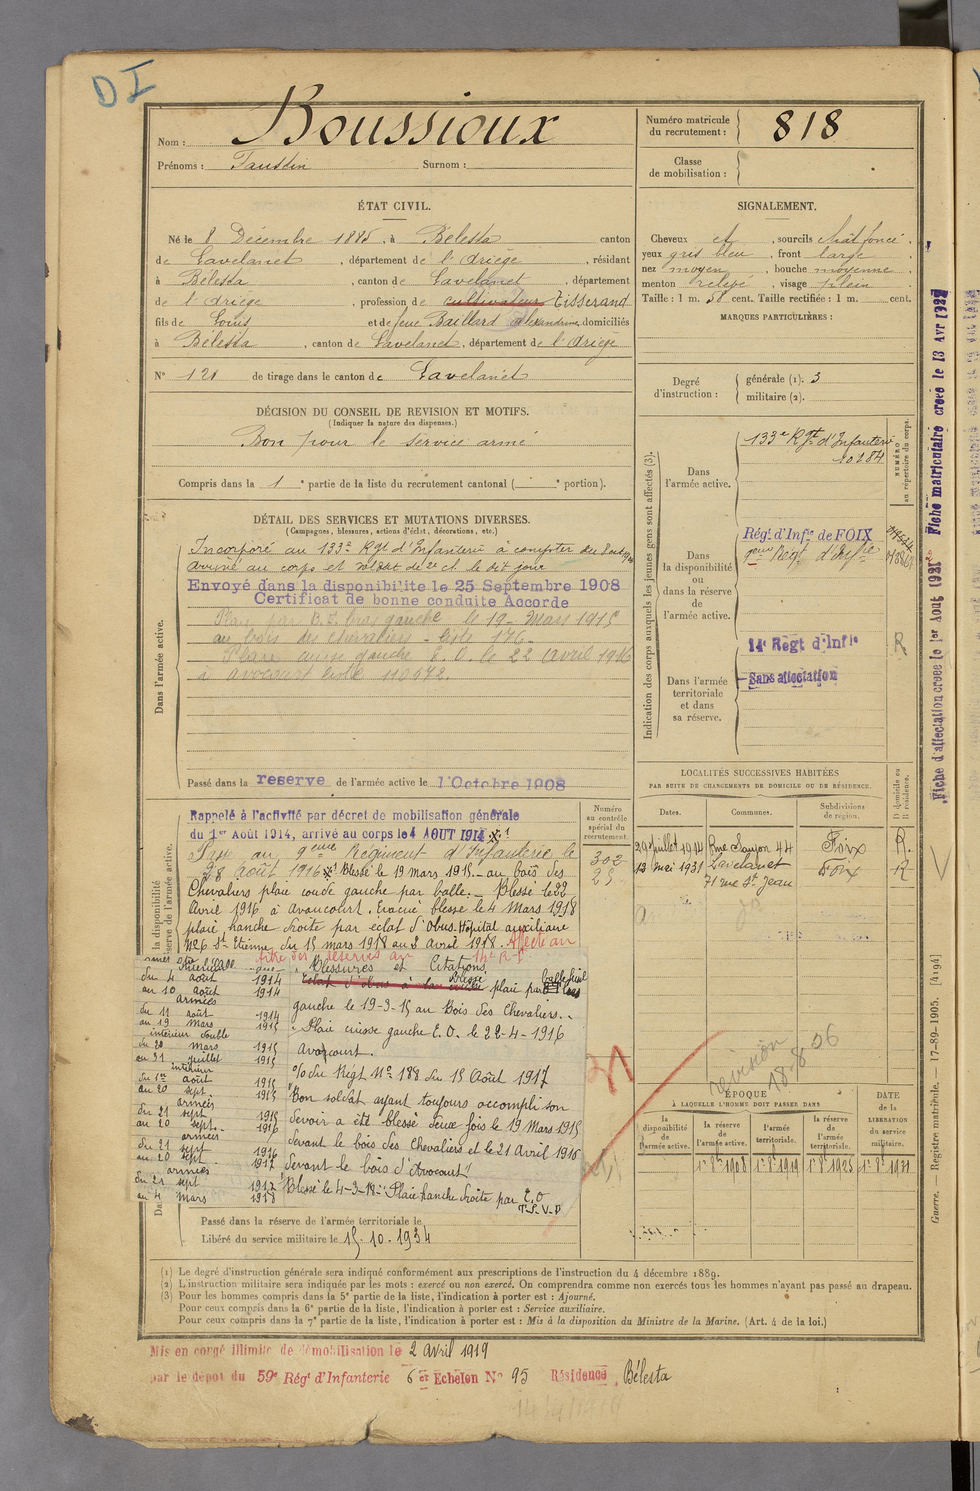 DI
Nom : Boussioux
Prénoms : Faustin Surnom :
Numéro matricule du recrutement : 818
Classe de mobilisation :
ÉTAT CIVIL.
Né le 8 Décembre 1885, à Bélesta canton
de Lavelanet, département de l'Ariège, résidant
à Bélesta, canton de Lavelanet, département
de l'Ariège, profession de cultivateur Tisserand
fils de Louis et de feue Baillard Alexandrine, domiciliés
à Bélesta, canton de Lavelanet, département de l'Ariège
N° 121 de tirage dans le canton de Lavelanet
SIGNALEMENT.
Cheveux et, sourcils chât foncé.
yeux gris bleu, front large
nez moyen, bouche moyenne
menton relevé, visage plein
Taille : 1 m. 58 cent. Taille rectifiée : 1 m. cent.
MARQUES PARTICULIÈRES :
Degré d'instruction : générale (1). 3
militaire (2).
DÉCISION DU CONSEIL DE REVISION ET MOTIFS.
(Indiquer la nature des dispenses.)
Bon pour le service armé
Compris dans la 1e partie de la liste du recrutement cantonal ( e portion).
DÉTAIL DES SERVICES ET MUTATIONS DIVERSES.
(Campagnes, blessures, actions d'éclat, décorations, etc.)
Dans l'armée active.
Incorporé au 133e Rgt d'Infanterie à compter du 8 oct
arrivé au corps et soldat de 2e cl. le dit jour
Envoyé dans la disponibilité le 25 Septembre 1908
Certificat de bonne conduite Accorde
Plaie par B. bras gauche le 19 Mars 1915
au bois des chevaliers - liste 176 -
Plaie cuisse gauche E. O. le 22 Avril 1916
à Avocourt liste 110072.
Passé dans la reserve de l'armée active le 1 Octobre 1908
Indication des corps auxquels les jeunes gens sont affectés (3).
NUMÉRO au répertoire du corps.
Dans l'armée active.
133e Rgt d'Infanterie
10284
Dans la disponibilité ou dans la réserve de l'armée active.
Régt d'Infie de FOIX
9eme Régt d'Infie
R
Dans l'armée territoriale et dans sa réserve.
14e Regt d'Infie
Sans affectation
Fiche d'affectation créée le 1er Aout 1921 Fiche matriculaire créée le 13 Avr 1922
Rappelé à l'activité par décret de mobilisation générale
du 1er Août 1914, arrivé au corps le 4 AOUT 1914
Passé au 9eme Régiment d'Infanterie le
28 Août 1916 Blessé le 19 mars 1915 - au bois des
Chevaliers plaie coude gauche par balle. Blessé le 22
Avril 1916 à Avoucourt. Evacué blessé le 4 Mars 1918
plaie hanche droite par éclat d'obus. Hôpital auxiliaire
N°26 St Etienne du 15 mars 1918 au 8 avril 1918. Affecté au
titre des réserves au 14e R.I
Numéro au contrôle spécial du recrutement.
302
25
Intérieur
du 4 août 1914
au 10 août 1914
armées
du 11 août 1914
au 19 Mars 1915
intérieur double
du 20 mars 1915
au 31 juillet 1915
intérieur
du 1er août 1915
au 20 sept. 1915
armées
du 21 sept 1915
au 20 sept. 1916
armées
du 21 sept 1916
au 20 sept 1917
armées
du 21 sept 1917
au 4 mars 1918
Blessures et Citations
Eclat d'obus à la cuisse Blessé plaie par balle bras
gauche le 19-3-15 au Bois des Chevaliers.
Plaie cuisse gauche E.O. le 22-4-1916
Avocourt.
O/ du Régt N° 188 du 15 Août 1917
Bon soldat ayant toujours accompli son
devoir a été blessé deux fois le 19 Mars 1915
devant le bois des Chevaliers et le 21 Avril 1916
devant le bois d'Avocourt
Blessé le 4-3-18 Plaie hanche droite par E.O
T.S.V.P
Passé dans la réserve de l'armée territoriale le
Libéré du service militaire le 15-10-1934
LOCALITÉS SUCCESSIVES HABITÉES
PAR SUITE DE CHANGEMENTS DE DOMICILE OU DE RÉSIDENCE.
Dates. Communes. Subdivisions de région. D domicile ou R résidence.
29 juillet 1914 Rue 44 Foix R.
13 mai 1931 Lavelanet Foix R
71 rue St Jean
revision 18-8-06
ÉPOQUE
À LAQUELLE L'HOMME DOIT PASSER DANS
la disponibilité de l'armée active. la réserve de l'armée active. l'armée territoriale. la réserve de l'armée territoriale. DATE de la LIBÉRATION du service militaire.
1er 8bre 1908 1er 8bre 1919 1er 8bre 1925 1er 8bre 1931
Guerre. — Registre matricule. — 17-89-1905. [4194]
(1) Le degré d'instruction générale sera indiqué conformément aux prescriptions de l'instruction du 4 décembre 1889.
(2) L'instruction militaire sera indiquée par les mots : exercé ou non exercé. On comprendra comme non exercés tous les hommes n'ayant pas passé au drapeau.
(3) Pour les hommes compris dans la 5e partie de la liste, l'indication à porter est : Ajourné.
Pour ceux compris dans la 6e partie de la liste, l'indication à porter est : Service auxiliaire.
Pour ceux compris dans la 7e partie de la liste, l'indication à porter est : Mis à la disposition du Ministre de la Marine. (Art. 4 de la loi.)
Mis en congé illimité de démobilisation le 2 avril 1919
par le dépôt du 59e Régt d'Infanterie 6 er Echelon N° 95 Résidence Bélesta